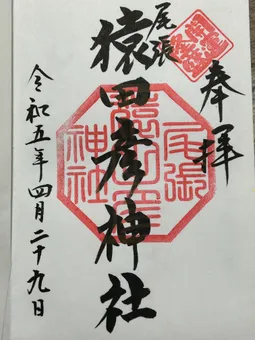 奉拝
尾張
猿田彦神社
令和五年四月二十九日
尾張
猿田彦
神社